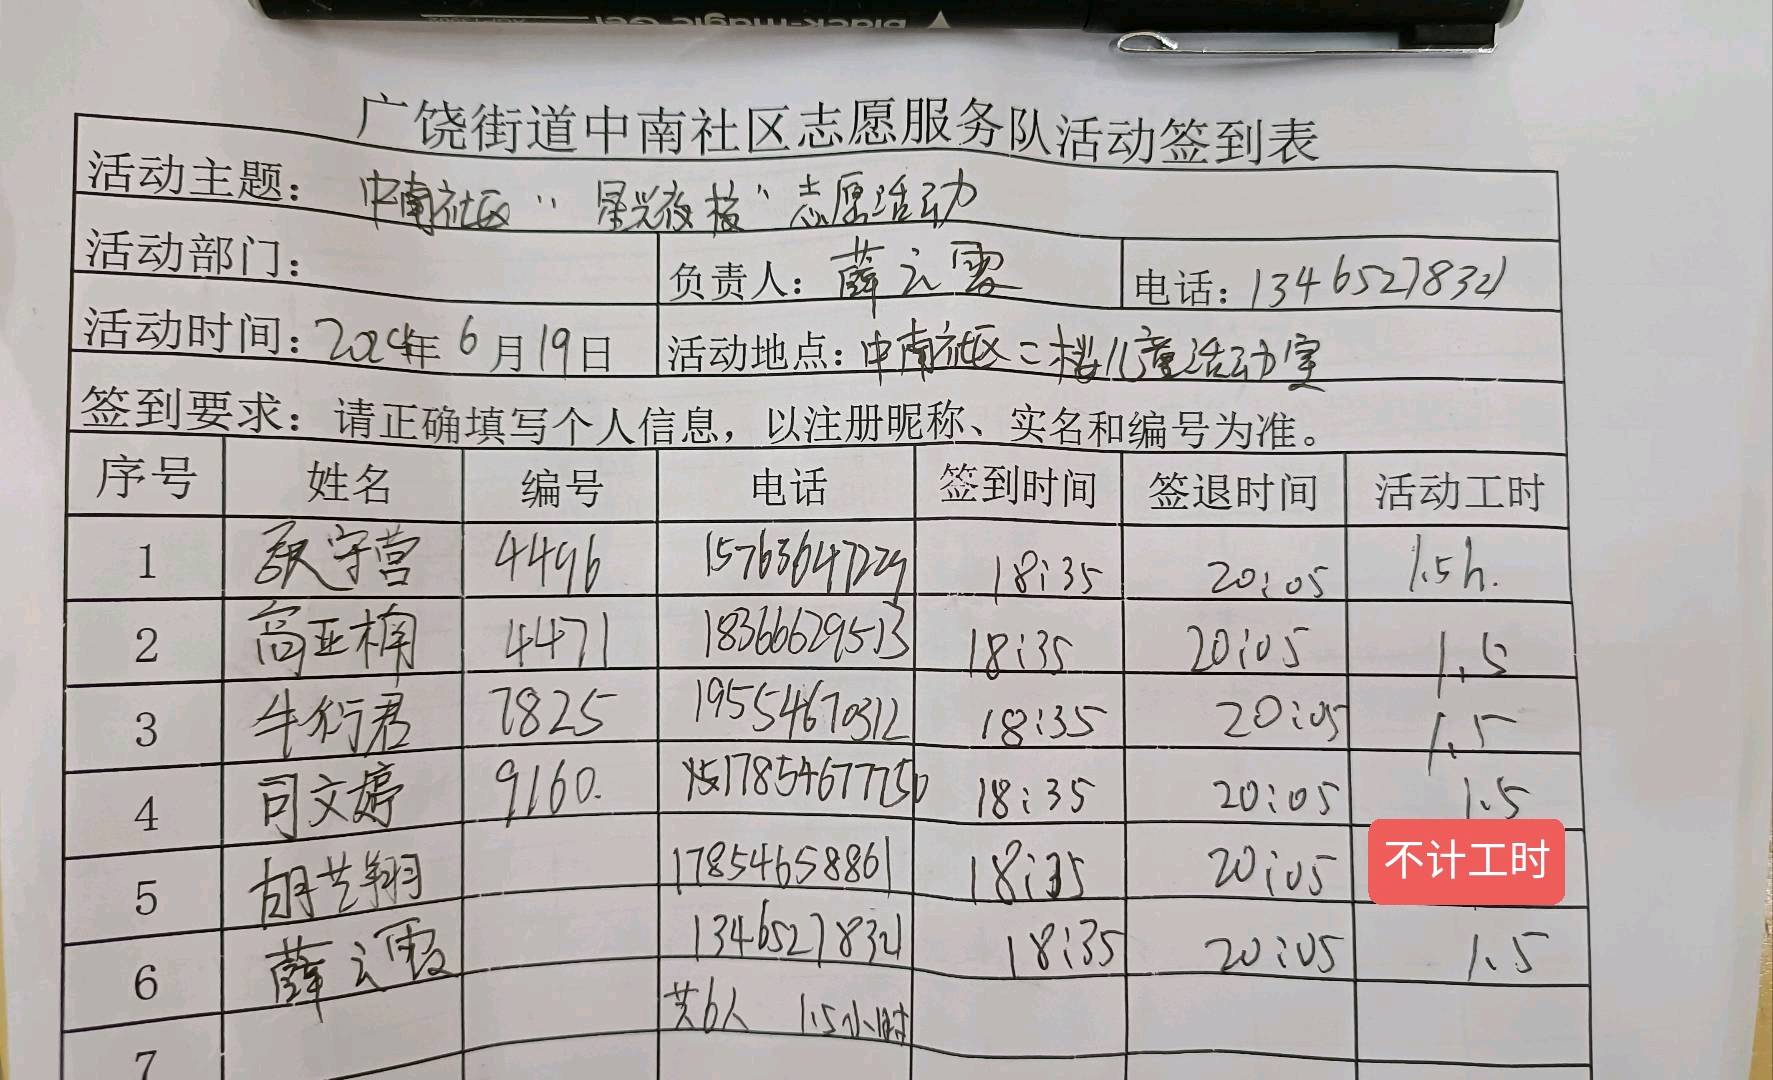 black-magic Gel
广饶街道中南社区志愿服务队活动签到表
活动主题： 中南社区“星兴夜校”志愿活动
活动部门： 负责人：薛云霞 电话：13465278321
活动时间：2024年6月19日 活动地点：中南社区二楼儿童活动室
签到要求：请正确填写个人信息，以注册昵称、实名和编号为准。
序号 姓名 编号 电话 签到时间 签退时间 活动工时
1 守营 4496 15763647229 18:35 20:05 1.5h.
2 高亚楠 4471 18366629513 18:35 20:05 1.5
3 牛衍君 7825 19554670312 18:35 20:05 1.5
4 司文婷 9160. 17854677750 18:35 20:05 1.5
5 胡艺翔 17854658861 18:35 20:05 不计工时
6 薛云霞 13465278321 18:35 20:05 1.5
共6人 1.5小时
7